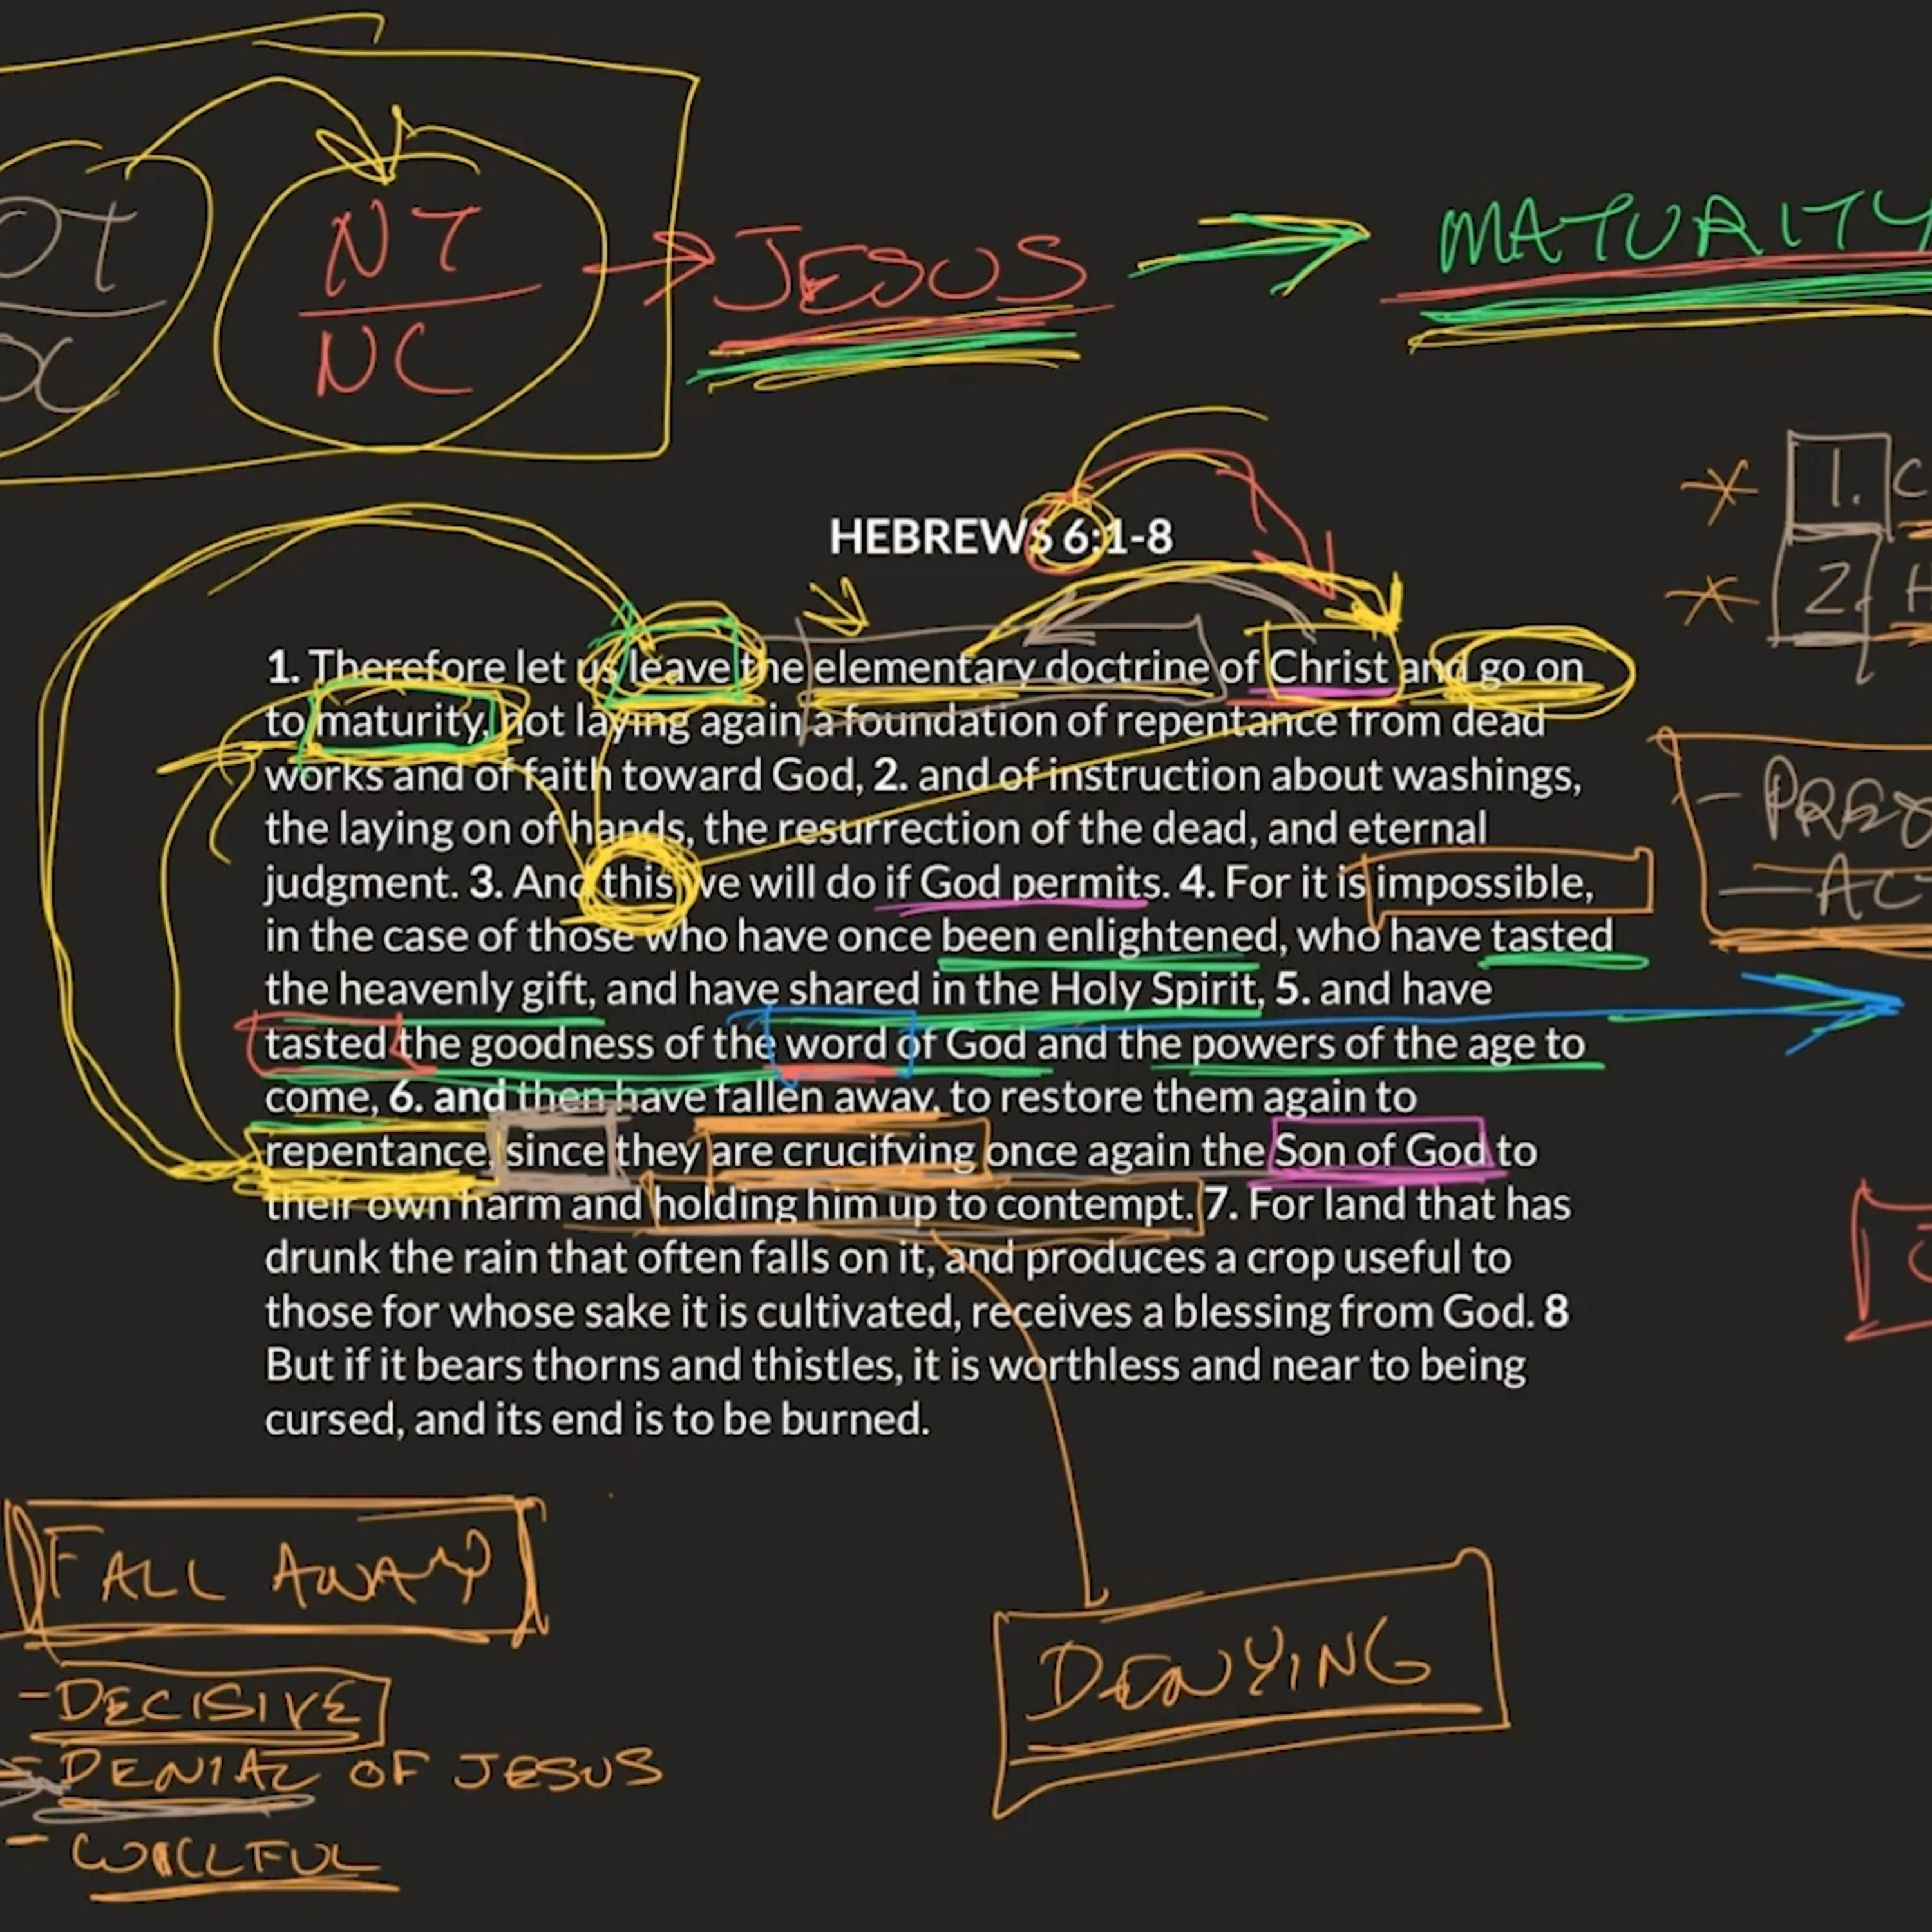 OT NT JESUS MATURITY
NC
1.
2.
HEBREWS 6:1-8
1. Therefore let us leave the elementary doctrine of Christ and go on
to maturity, not laying again a foundation of repentance from dead
works and of faith toward God, 2. and of instruction about washings,
the laying on of hands, the resurrection of the dead, and eternal
judgment. 3. And this we will do if God permits. 4. For it is impossible,
in the case of those who have once been enlightened, who have tasted
the heavenly gift, and have shared in the Holy Spirit, 5. and have
tasted the goodness of the word of God and the powers of the age to
come, 6. and then have fallen away, to restore them again to
repentance, since they are crucifying once again the Son of God to
their own harm and holding him up to contempt. 7. For land that has
drunk the rain that often falls on it, and produces a crop useful to
those for whose sake it is cultivated, receives a blessing from God. 8
But if it bears thorns and thistles, it is worthless and near to being
cursed, and its end is to be burned.
FALL AWAY
- DECISIVE
- DENIAL OF JESUS
- WILLFUL
DENYING